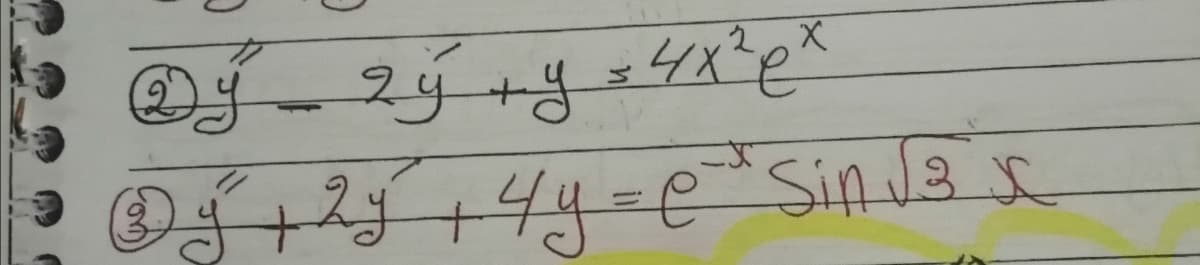 ② y″ - 2y′ + y = 4x²eˣ
③ y″ + 2y′ + 4y = e⁻ˣ Sin √3 x